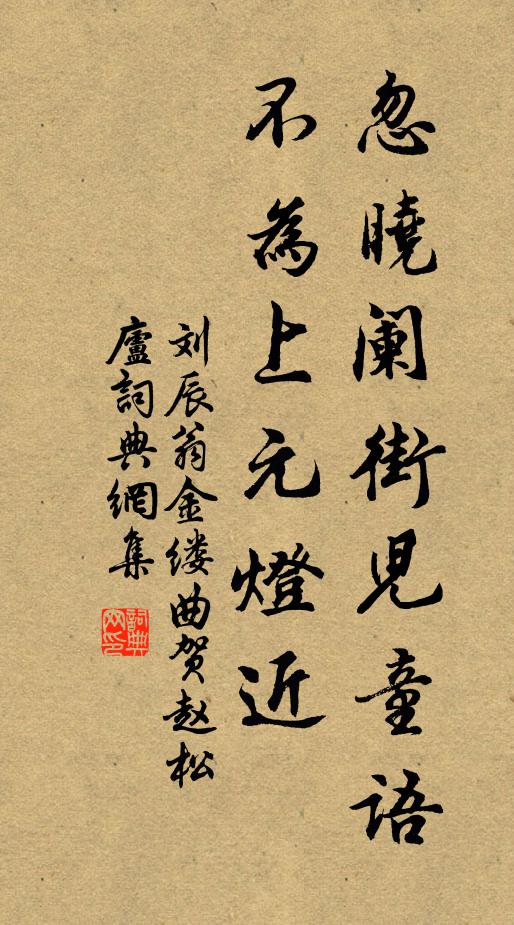 忽曉阑街児童語
不為上元燈近
刘辰翁金缕曲贺赵松
廬詞典網集
詞典网印